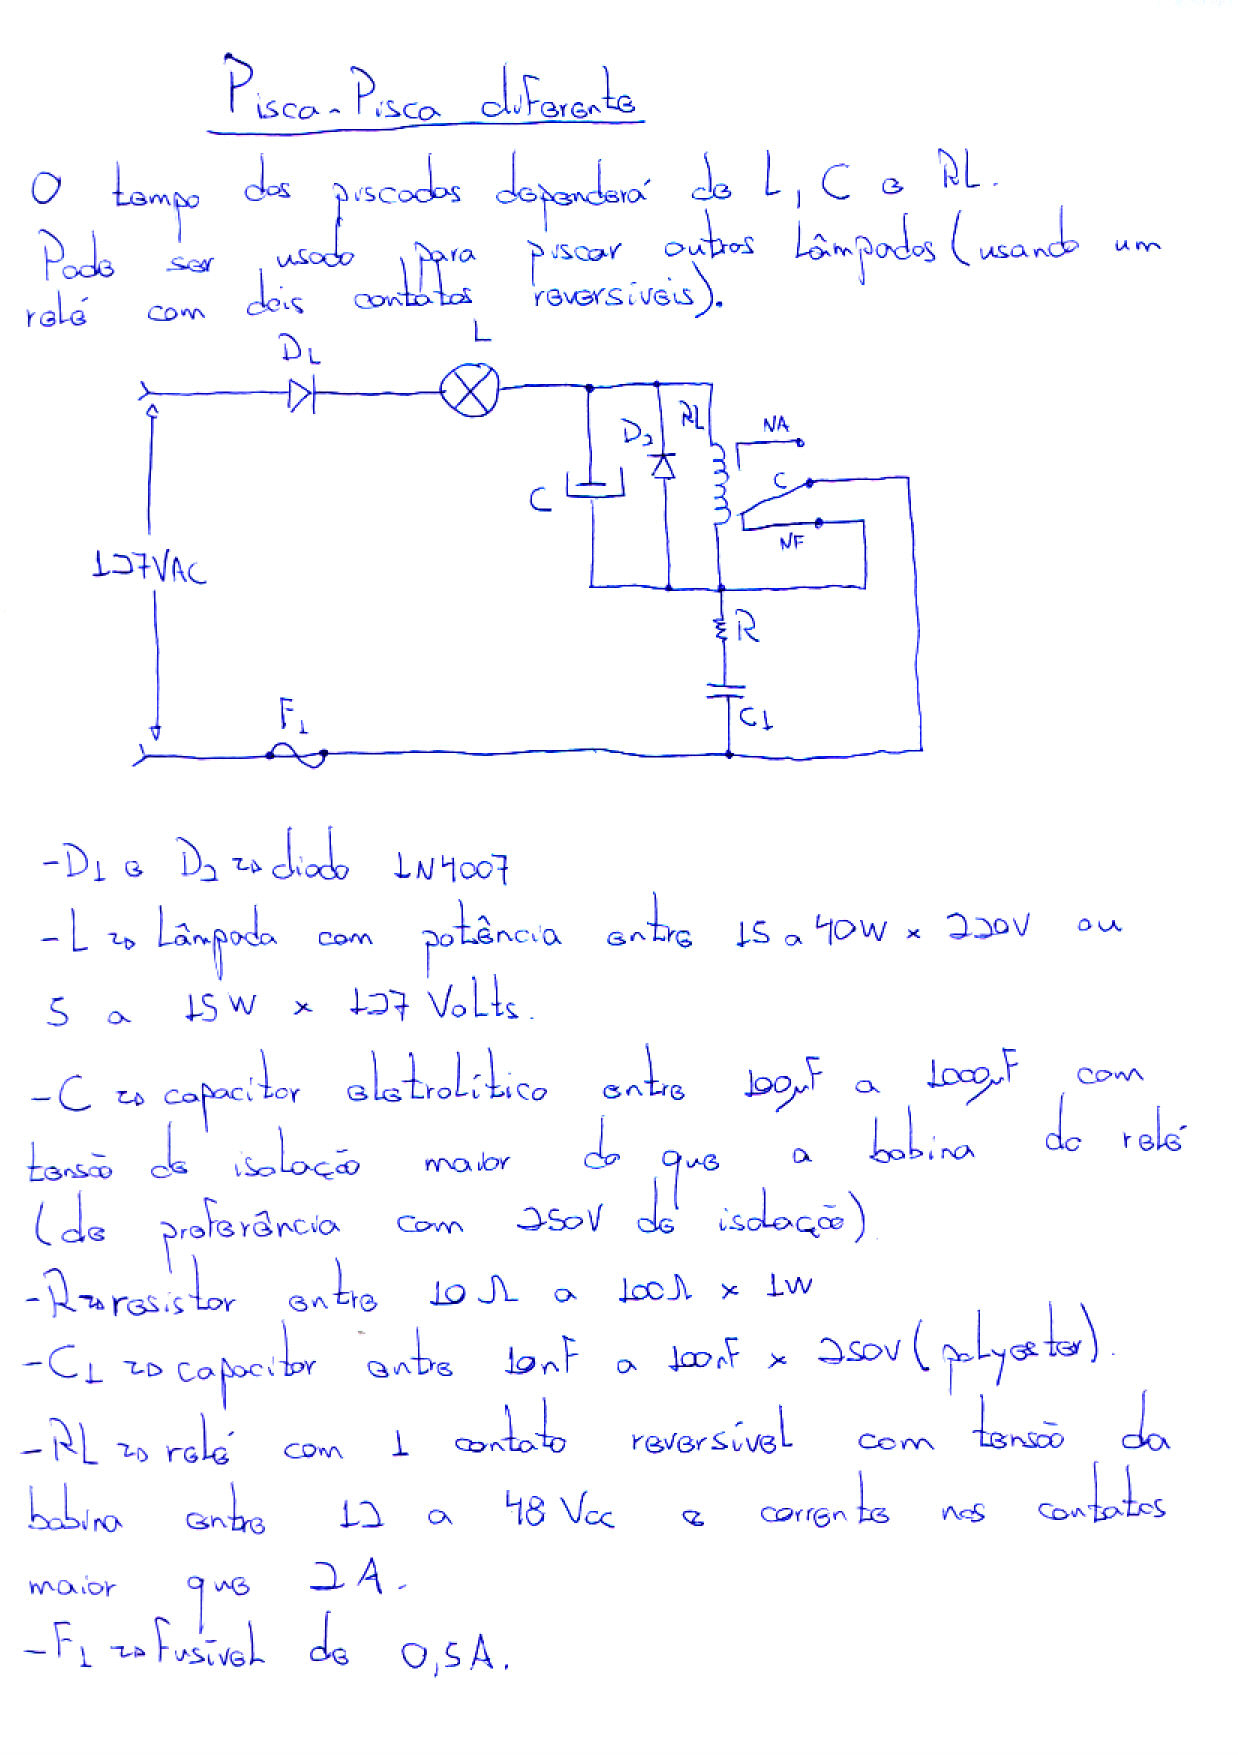 Pisca-Pisca diferente
O tempo das piscadas dependerá de L, C e RL.
Pode ser usado para piscar outras Lâmpadas (usando um
relé com dois contatos reversíveis).
D1
L
D2
RL
NA
C
C
NF
127VAC
R
F1
C1
-D1 e D2 => diodo 1N4007
-L => Lâmpada com potência entre 15 a 40W x 220V ou
5 a 15W x 127 Volts.
-C => capacitor eletrolítico entre 100µF a 1000µF com
tensão de isolação maior do que a bobina do relé
(de preferência com 250V de isolação)
-R => resistor entre 10Ω a 100Ω x 1W
-C1 => capacitor entre 10nF a 100nF x 250V (polyester).
-RL => relé com 1 contato reversível com tensão da
bobina entre 12 a 48 Vcc e corrente nos contatos
maior que 2A.
-F1 => Fusível de 0,5A.